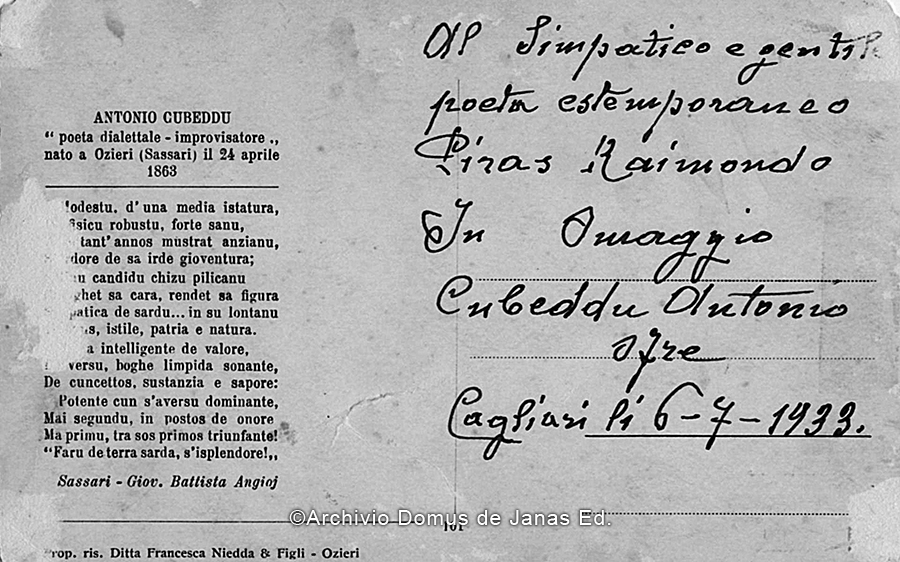 ANTONIO CUBEDDU
“ poeta dialettale - improvisatore „
nato a Ozieri (Sassari) il 24 aprile
1863
odestu, d'una media istatura,
sicu robustu, forte sanu,
tant'annos mustrat anzianu,
dore de sa irde gioventura;
u candidu chizu pilicanu
ghet sa cara, rendet sa figura
patica de sardu... in su lontanu
s, istile, patria e natura.
a intelligente de valore,
versu, boghe limpida sonante,
De cuncettos, sustanzia e sapore:
Potente cun s'aversu dominante,
Mai segundu, in postos de onore
Ma primu, tra sos primos triunfante!
“Faru de terra sarda, s'isplendore!„
Sassari - Giov. Battista Angioj
rop. ris. Ditta Francesca Niedda & Figli - Ozieri
Al Simpatico e gentile
poeta estemporaneo
Piras Raimondo
In Omaggio
Cubeddu Antonio
Cagliari li 6-7-1933.
©Archivio Domus de Janas Ed.
101